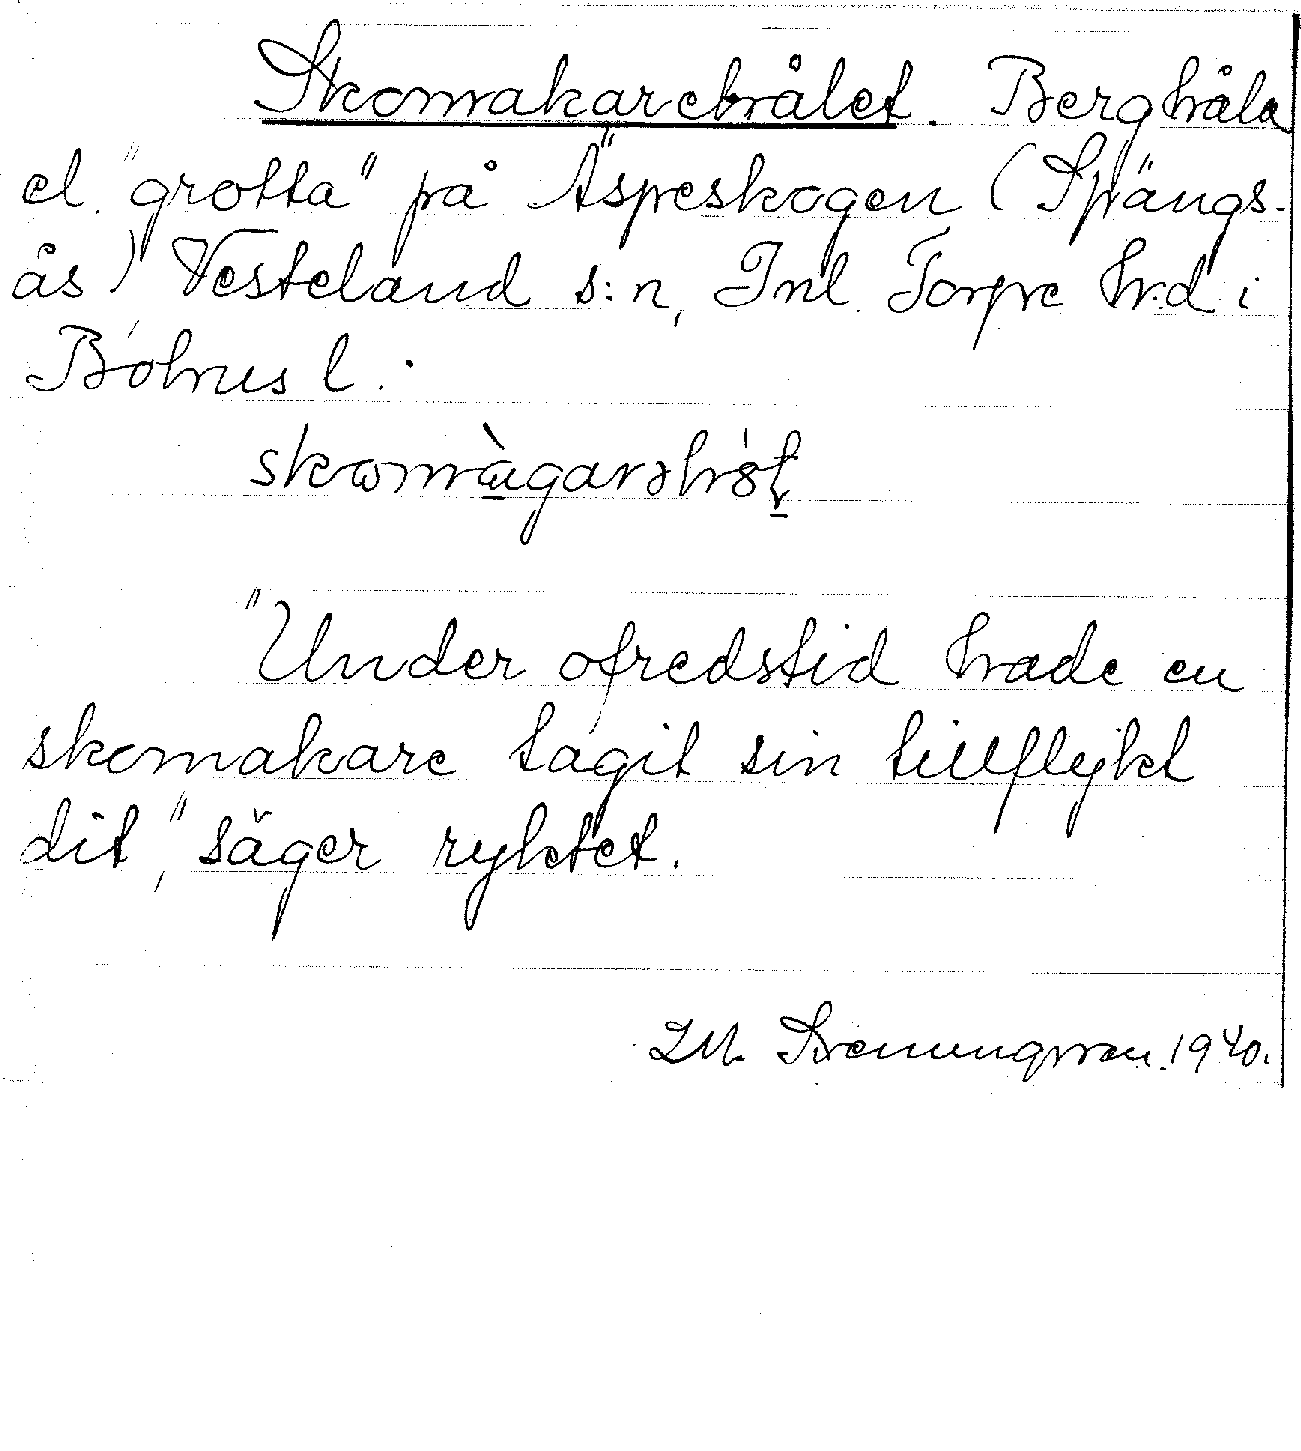 Skomakarehålet. Berghåla
el. "grotta" på Äspeskogen (Spängs-
ås) Vesteland s:n, Inl. Torpe hrd i
Bohus l.
"Under ofredstid hade en
skomakare tagit sin tillflykt
dit", säger ryktet.
1940.